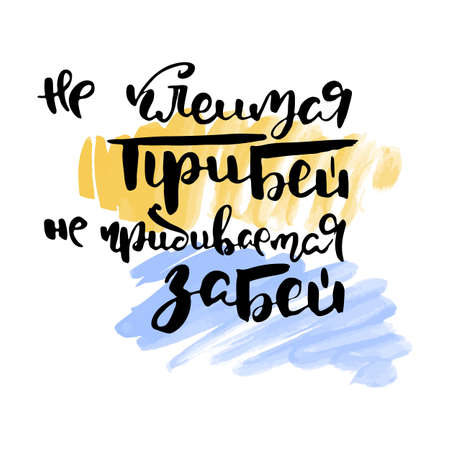 не клеится
прибей
не прибивается
забей